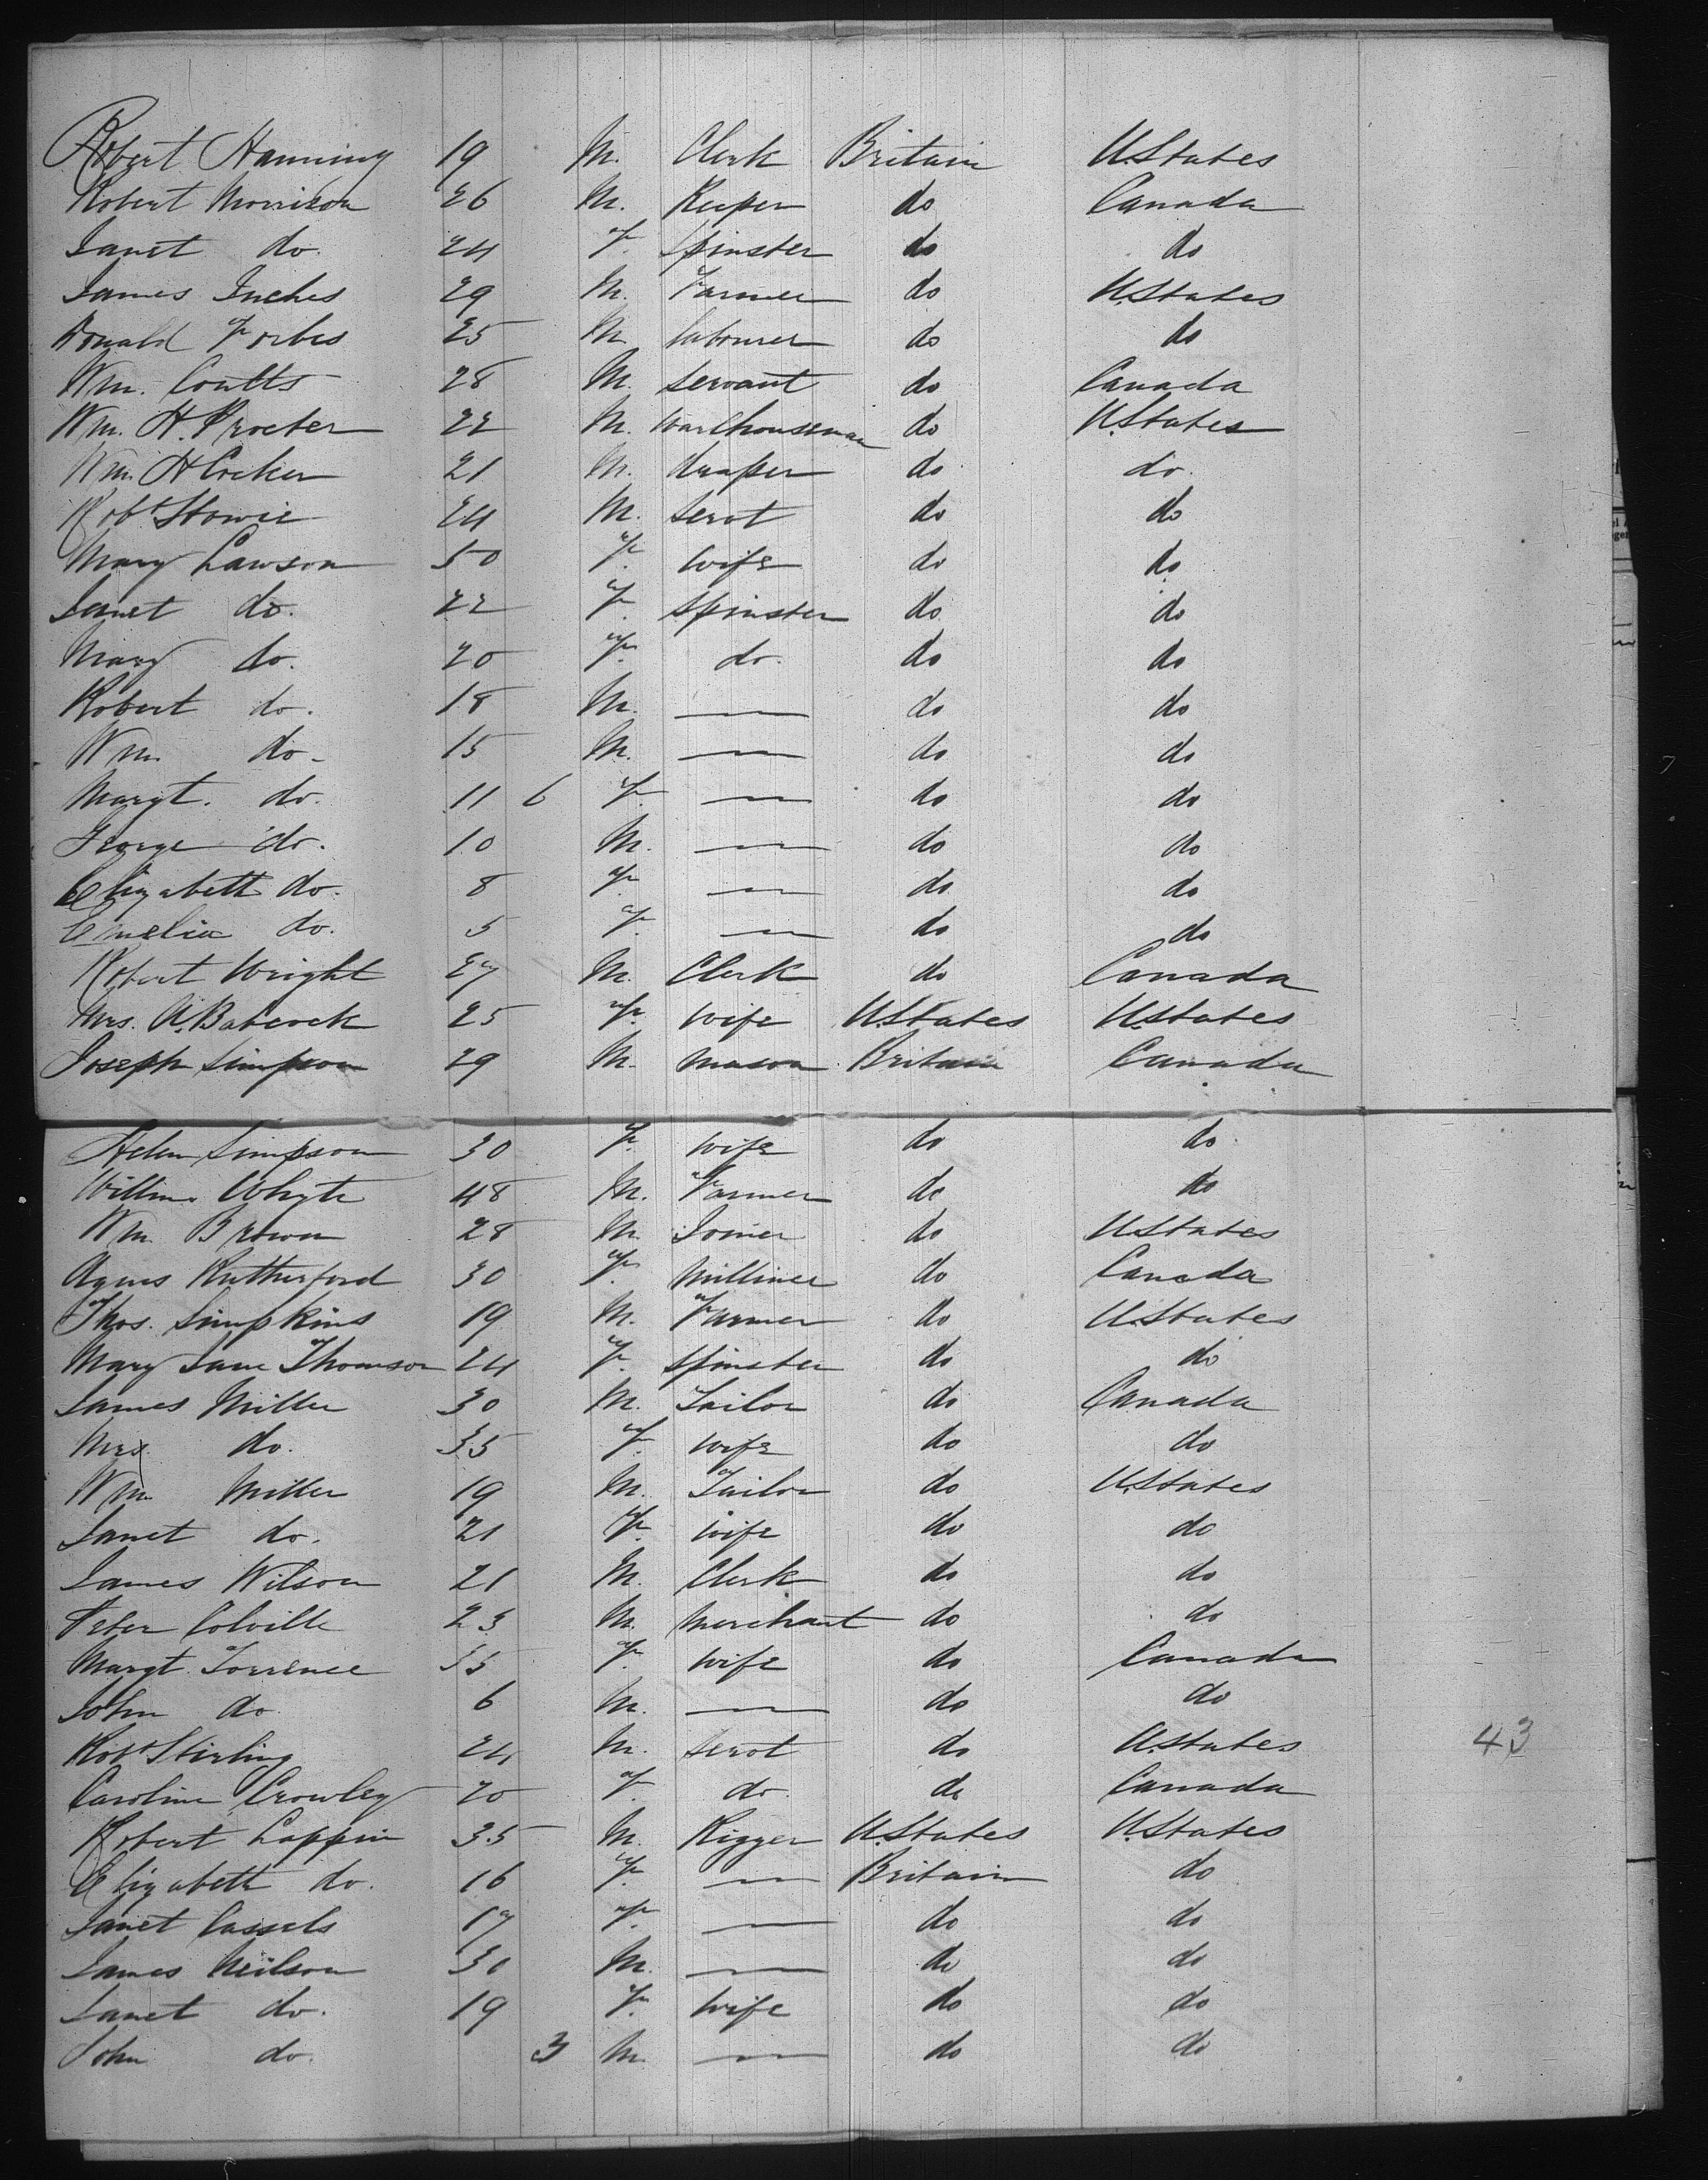 Robert Hanning 19 M. Clerk Britain U.States
Robert Morrison 26 M. Keeper do Canada
Janet do. 24 F. Spinster do do
James Inches 29 M. Farmer do U.States
Donald Forbes 25 M. labourer do do
Wm. Coutts 28 M. Servant do Canada
Wm. H. Procter 22 M. Warehouseman do U.States
Wm. H Cocker 21 M. draper do do.
Robt Stowie 24 M. Servt do do
Mary Lawson 50 F. wife do do
Janet do. 22 F. Spinster do do
Mary do. 20 F. do. do do
Robert do. 18 M. — do do
Wm. do. 15 M. — do do
Margt. do. 11 6 F. — do do
George do. 10 M. — do do
Elizabeth do. 8 F. — do do
Emelia do. 5 F. — do do
Robert Wright 27 M. Clerk do Canada
Mrs. A. Babcock 25 F. wife U.States U.States
Joseph Simpson 29 M. mason Britain Canada
Helen Simpson 30 F. wife do do
Willm. Whyte 48 M. Farmer do do
Wm. Brown 28 M. Joiner do U.States
Agnes Rutherford 30 F. Milliner do Canada
Thos. Simpkins 19 M. Farmer do U.States
Mary Jane Thomson 24 F. Spinster do do
James Miller 30 M. Tailor do Canada
Mrs do. 35 F. wife do do
Wm Miller 19 M. Tailor do U.States
Janet do. 21 F. wife do do
James Wilson 21 M. Clerk do do
Peter Colville 23 M. Merchant do do
Margt. Torrence 35 F. wife do Canada
John do 6 M. — do do
Robt Stirling 24 M. Servt do U.States 43
Caroline Crowley 20 F. do. do Canada
Robert Lappin 35 M. Rigger U.States U.States
Elizabeth do. 16 F. — Britain do
Janet Cassels 17 F. — do do
James Neilson 30 M. — do do
Janet do. 19 F. Wife do do
John do. 3 M. — do do